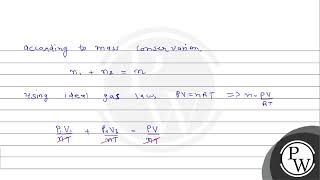 According to mass conservation
n₁ + n₂ = n
Using ideal gas law, PV = nRT => n = PV/RT
P₁V₁/RT + P₂V₂/RT = PV/RT
PW